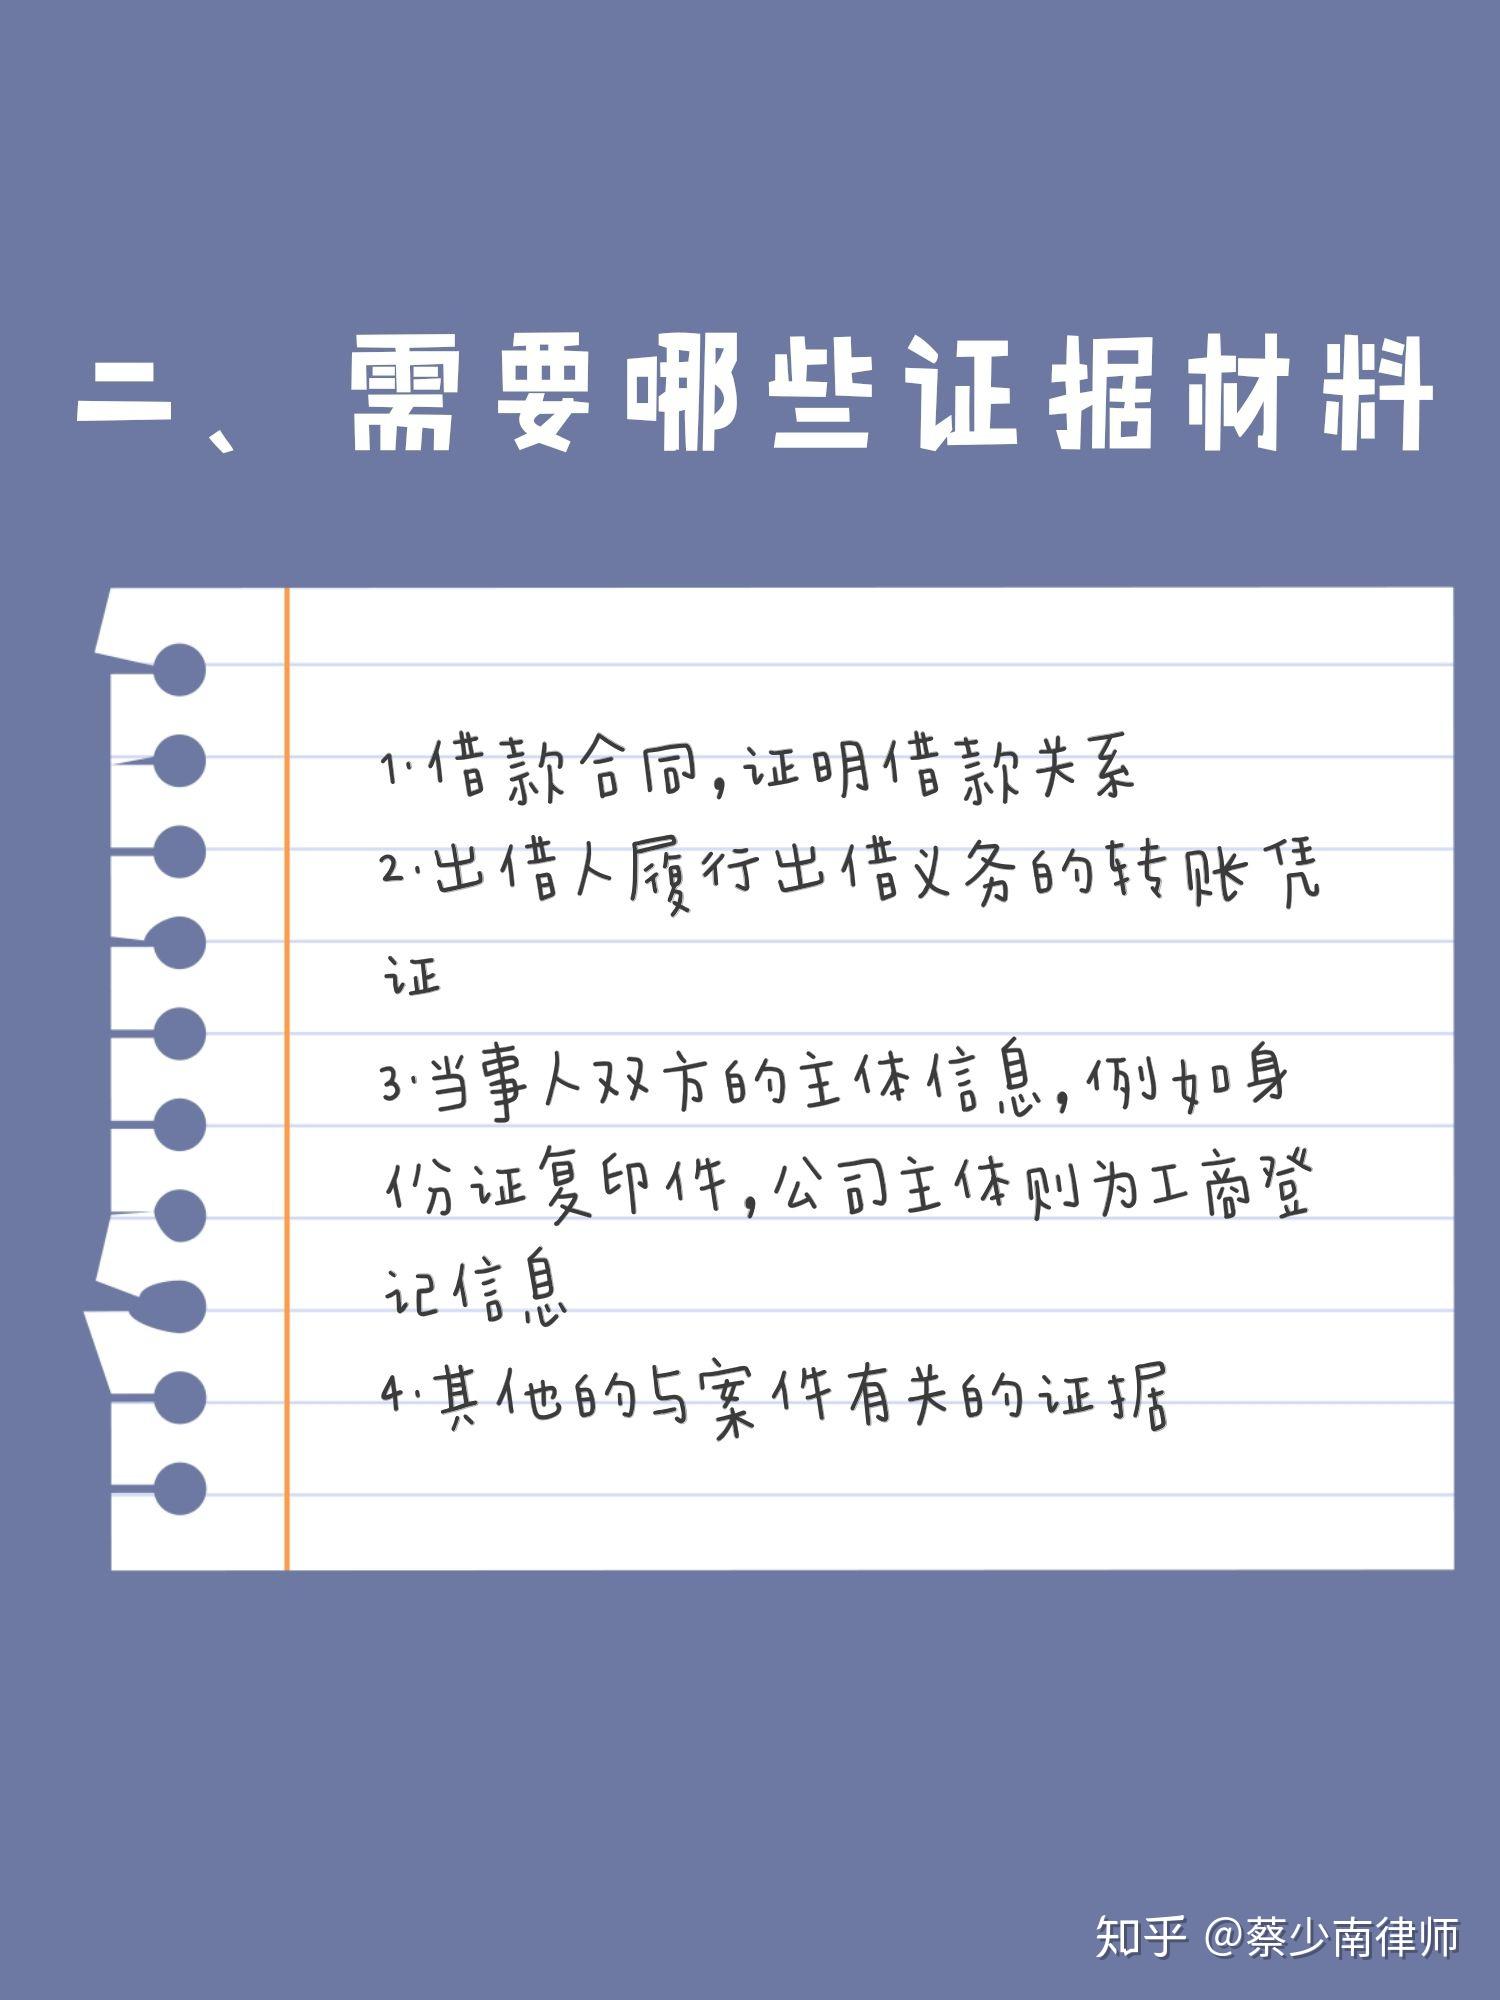 二、需要哪些证据材料
1.借款合同,证明借款关系
2.出借人履行出借义务的转账凭
证
3.当事人双方的主体信息,例如身
份证复印件,公司主体则为工商登
记信息
4.其他的与案件有关的证据
知乎 @蔡少南律师